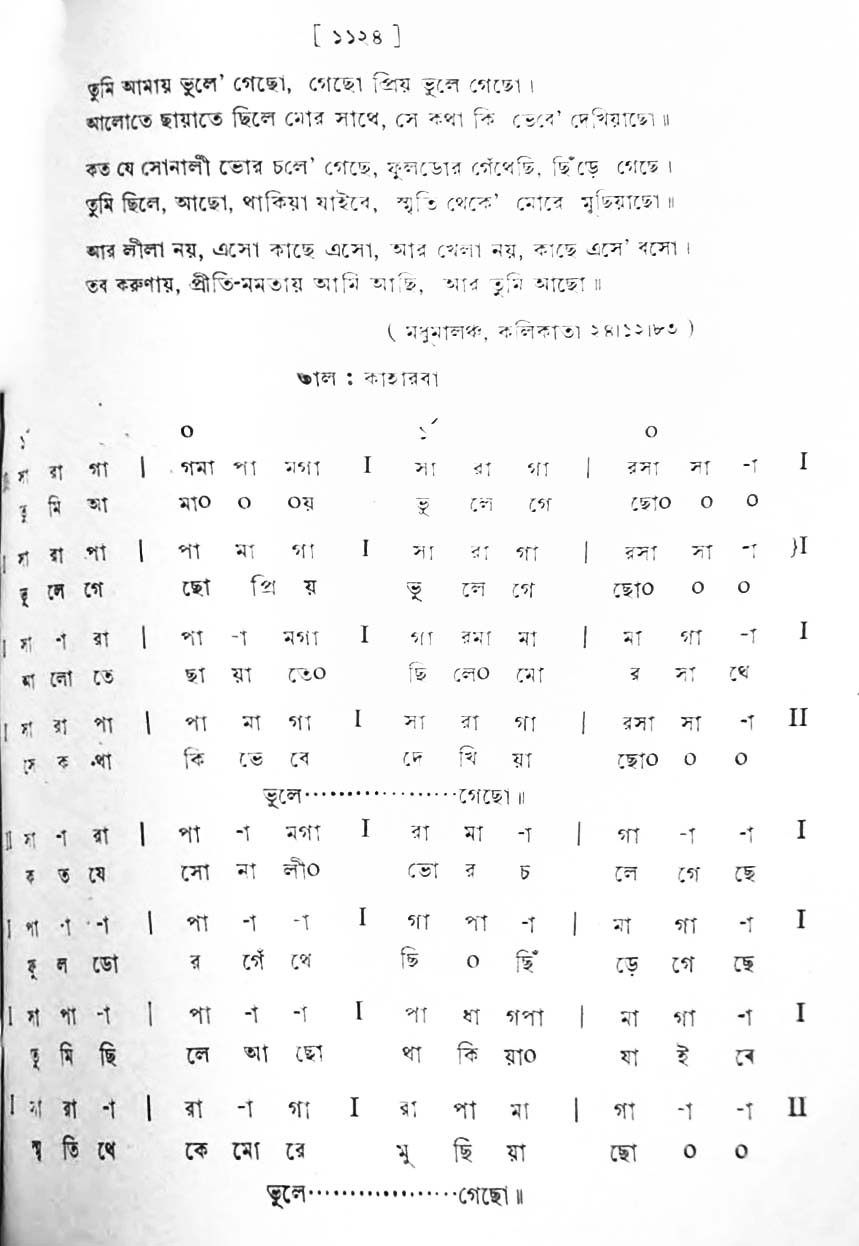 [ ১১২৪ ]
তুমি আমায় ভুলে' গেছো, গেছো প্রিয় ভুলে গেছো।
আলোতে ছায়াতে ছিলে মোর সাথে, সে কথা কি ভেবে' দেখিয়াছো॥
কত যে সোনালী ভোর চলে' গেছে, ফুলডোর গেঁথেছি, ছিঁড়ে গেছে।
তুমি ছিলে, আছো, থাকিয়া যাইবে, স্মৃতি থেকে' মোরে মুছিয়াছো॥
আর লীলা নয়, এসো কাছে এসো, আর খেলা নয়, কাছে এসে' বসো।
তব করুণায়, প্রীতি-মমতায় আমি আছি, আর তুমি আছো॥
( মধুমালঞ্চ, কলিকাতা ২৪।১২।৮৩ )
তাল : কাহারবা
১´ ০ ১´ ০
সা রা গা | গমা পা মগা I সা রা গা | রসা সা -া I
তু মি আ মা০ ০ ০য় ভু লে গে ছো০ ০ ০
| সা রা পা | পা মা গা I সা রা গা | রসা সা -া }I
ভু লে গে ছো প্রি য় ভু লে গে ছো০ ০ ০
| সা -া রা | পা -া মগা I গা রমা মা | মা গা -া I
আ লো তে ছা য়া তে০ ছি লে০ মো র সা থে
| সা রা পা | পা মা গা I সা রা গা | রসা সা -া II
সে ক থা কি ভে বে দে খি য়া ছো০ ০ ০
ভুলে··················গেছো॥
II সা -া রা | পা -া মগা I রা মা -া | গা -া -া I
ক ত যে সো না লী০ ভো র চ লে গে ছে
I পা -া -া | পা -া -া I গা পা -া | মা গা -া I
ফু ল ডো র গেঁ থে ছি ০ ছিঁ ড়ে গে ছে
I সা পা -া | পা -া -া I পা ধা গপা | মা গা -া I
তু মি ছি লে আ ছো থা কি য়া০ যা ই বে
I সা রা -া | রা -া গা I রা পা মা | গা -া -া II
স্মৃ তি থে কে মো রে মু ছি য়া ছো ০ ০
ভুলে··················গেছো॥